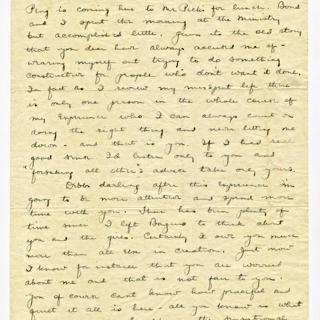 Ping is coming here to Mr. Picks for lunch. Bond
and I spent this morning at the Ministry
but accomplished little. Guess its the old story
that you dear have always accused me of -
wearing myself out trying to do something
constructive for people who dont want it done.
In fact as I review my misspent life there
is only one person in the whole course of
my experience who I can always count on
doing the right thing and never letting me
down - and that is you. If I had real
good sense I'd listen only to you and
"forsaking all other's advice take only yours.
darling after this experience I'm
going to be more attentive and spend more
time with you. There has been plenty of
time since I left Baguio to think about
you and the girls. Certainly I owe you much
more than all else in creation. Just now
I know for instance that you are worried
about me and that is not fair to you.
You of course cant know how peaceful and
quiet it all is here. all you know is what
the